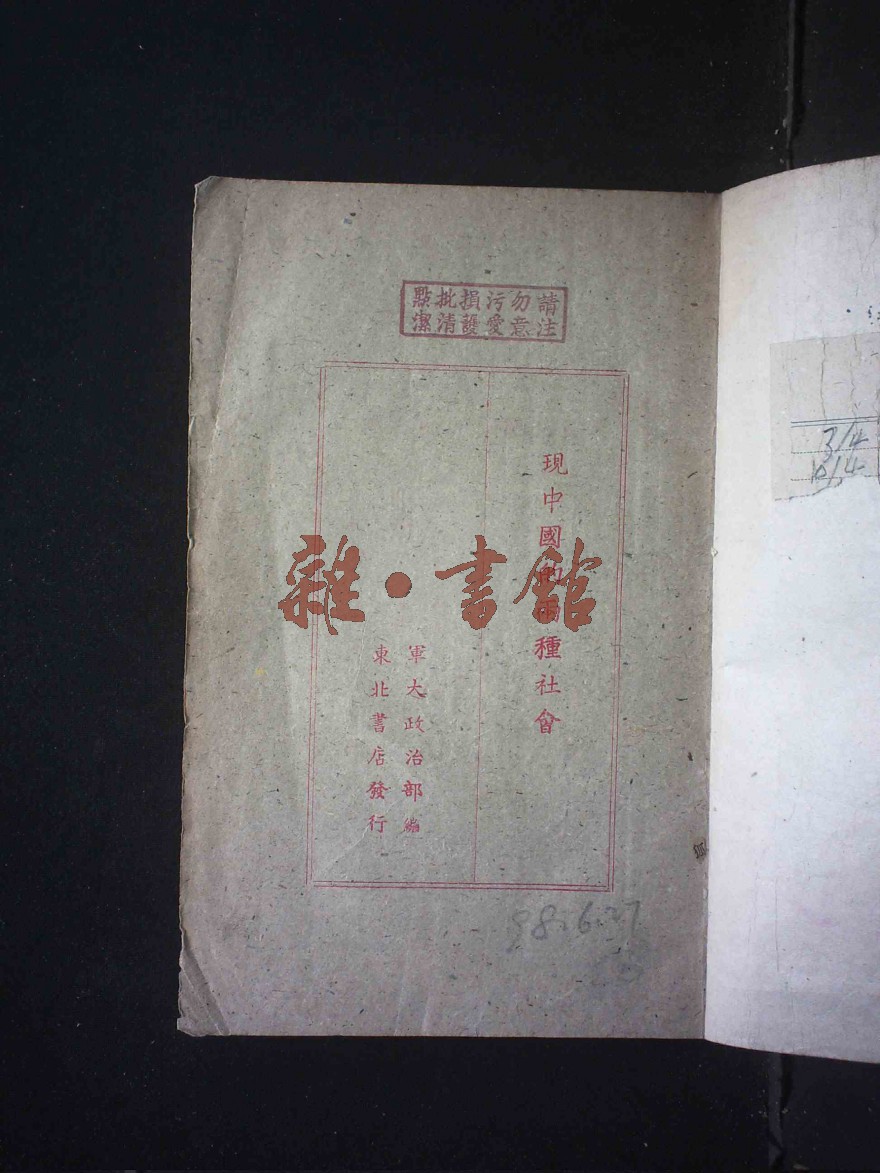 請勿污損批點
注意愛護清潔
現中國的兩種社會
軍大政治部編
東北書店發行
雜·書館
98.6.27
3/4